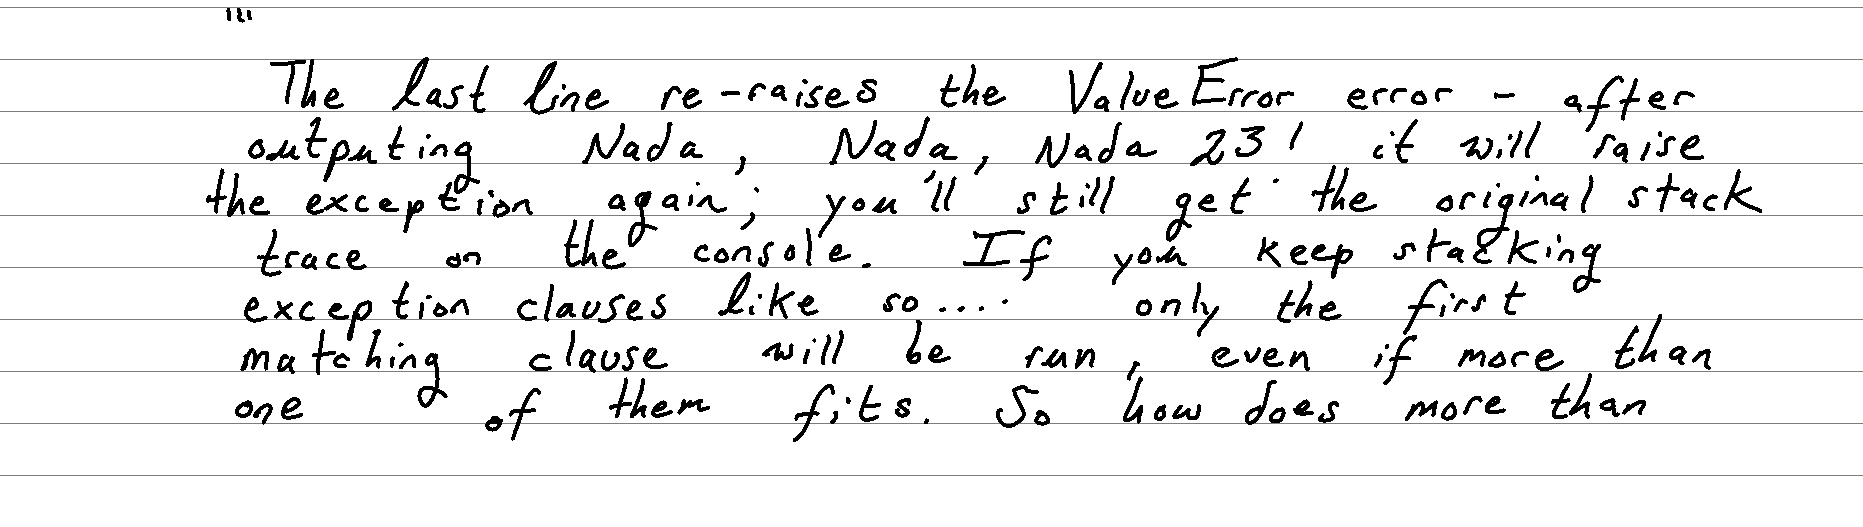 "'
The last line re-raises the ValueError error - after
outputing Nada, Nada, Nada 23! it will raise
the exception again; you'll still get the original stack
trace on the console. If you keep stacking
exception clauses like so.... only the first
matching clause will be run, even if more than
one of them fits. So how does more than